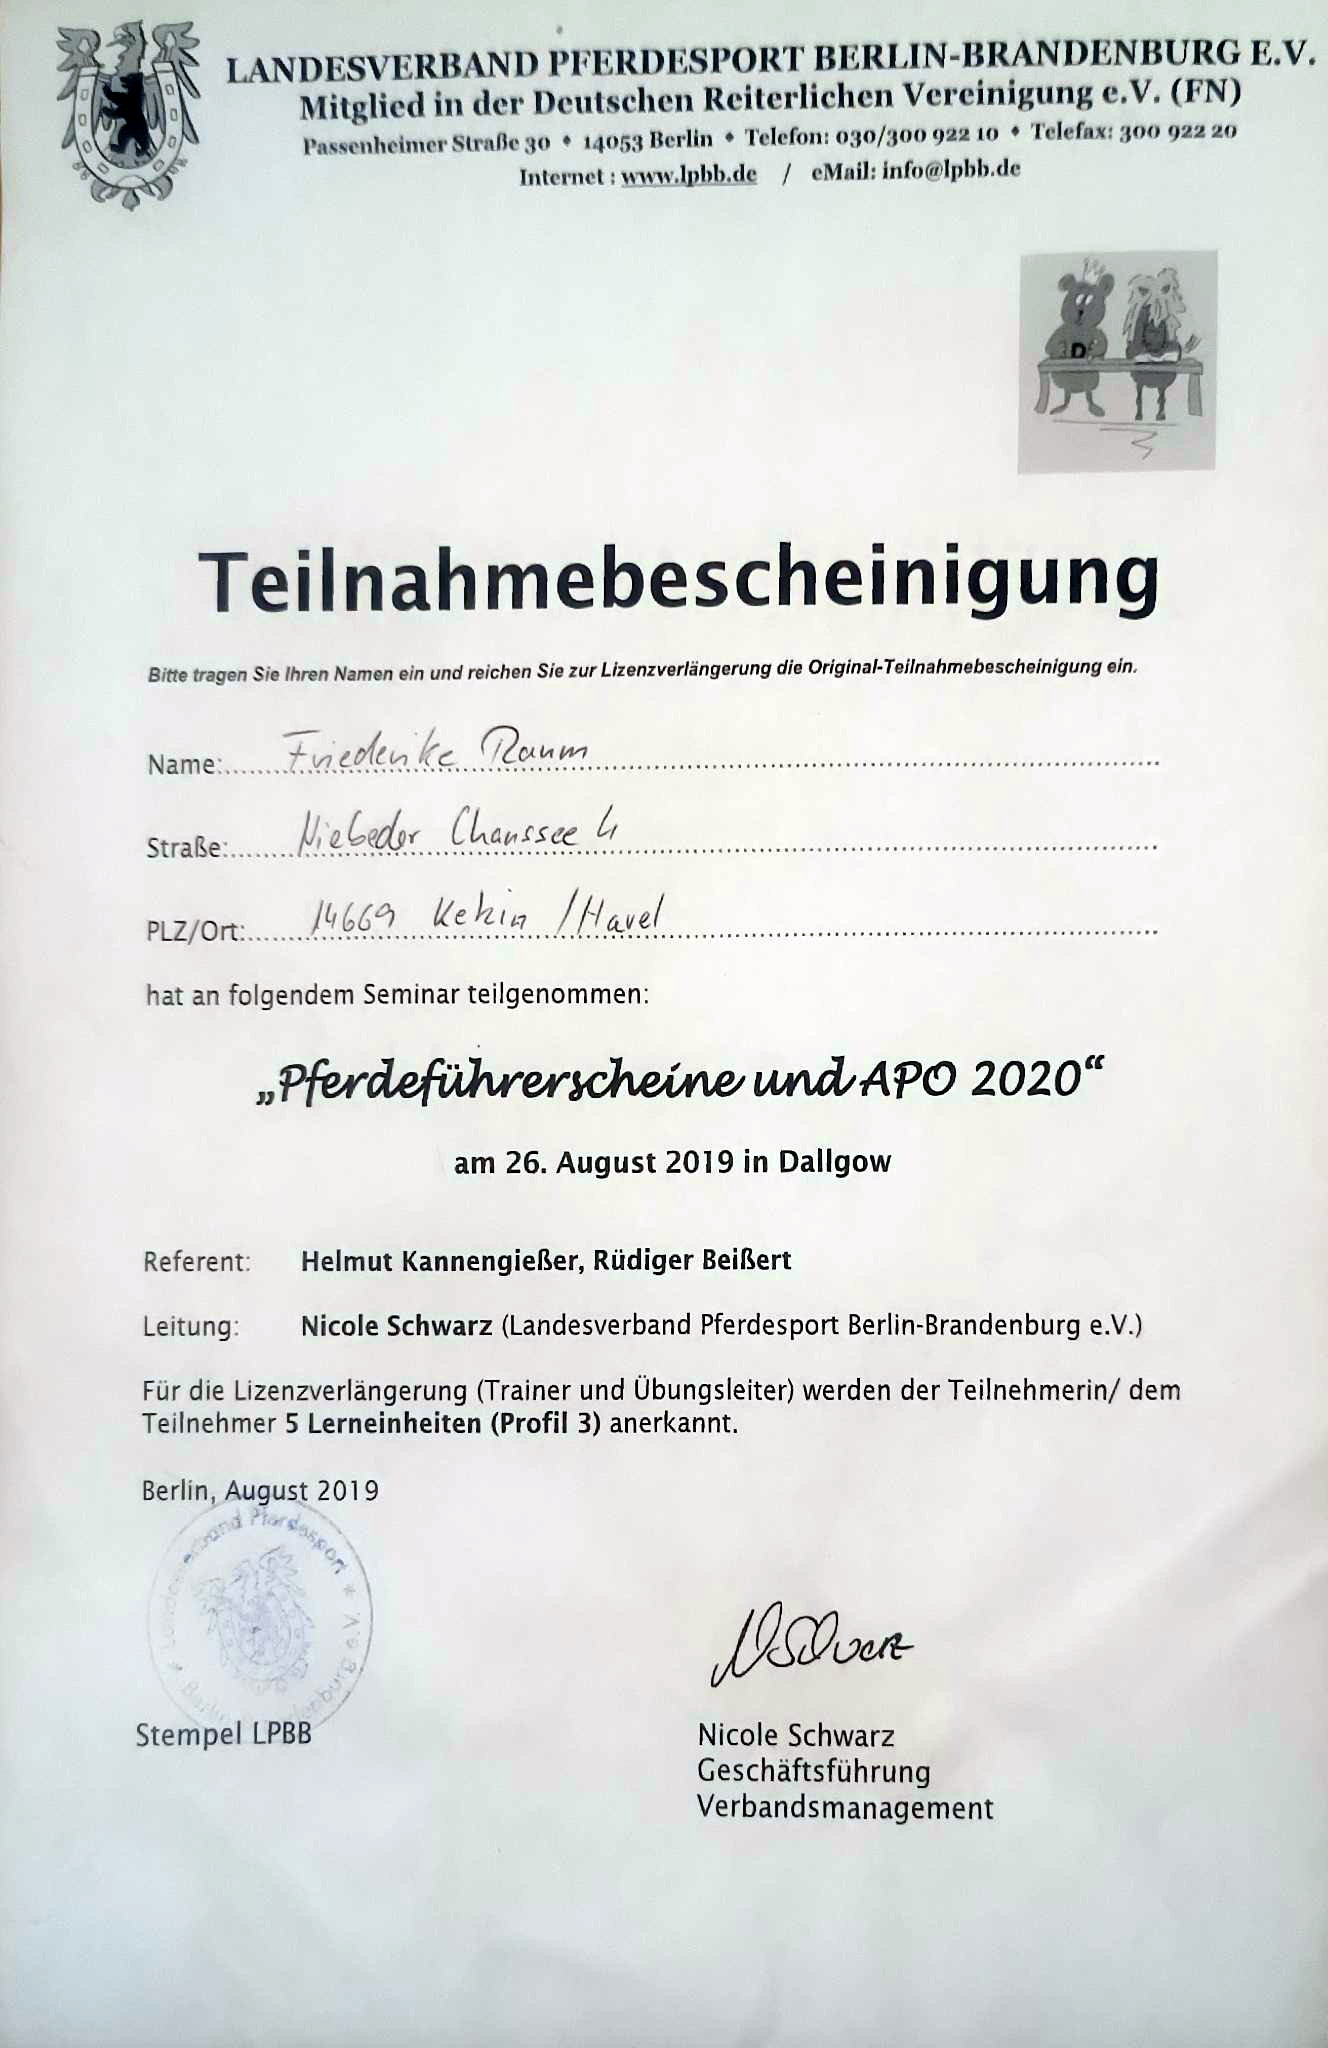 LANDESVERBAND PFERDESPORT BERLIN-BRANDENBURG E.V.
Mitglied in der Deutschen Reiterlichen Vereinigung e.V. (FN)
Passenheimer Straße 30 • 14053 Berlin • Telefon: 030/300 922 10 • Telefax: 300 922 20
Internet : www.lpbb.de / eMail: info@lpbb.de
D
Teilnahmebescheinigung
Bitte tragen Sie Ihren Namen ein und reichen Sie zur Lizenzverlängerung die Original-Teilnahmebescheinigung ein.
Name: Friederike Raum
Straße: Niebeder Chaussee 4
PLZ/Ort: 14669 Ketzin /Havel
hat an folgendem Seminar teilgenommen:
„Pferdeführerscheine und APO 2020“
am 26. August 2019 in Dallgow
Referent: Helmut Kannengießer, Rüdiger Beißert
Leitung: Nicole Schwarz (Landesverband Pferdesport Berlin-Brandenburg e.V.)
Für die Lizenzverlängerung (Trainer und Übungsleiter) werden der Teilnehmerin/ dem
Teilnehmer 5 Lerneinheiten (Profil 3) anerkannt.
Berlin, August 2019
Landesverband Pferdesport * Berlin Brandenburg e.V. *
NSchwarz
Stempel LPBB
Nicole Schwarz
Geschäftsführung
Verbandsmanagement